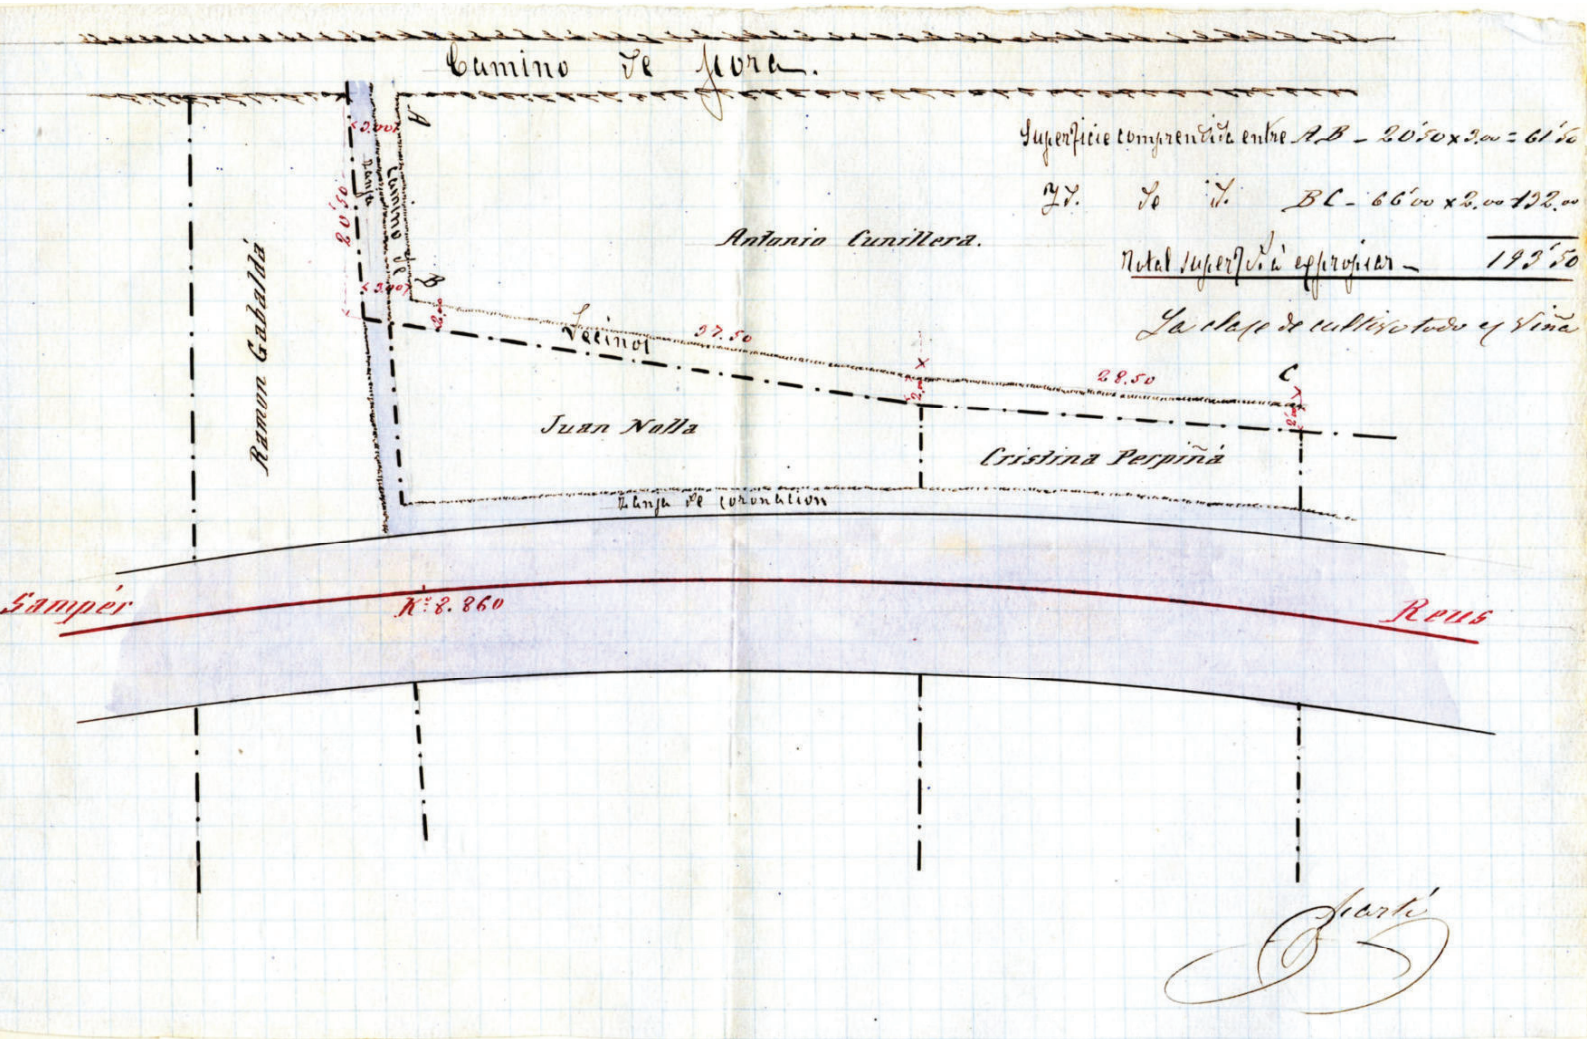 Camino de Mora.
A
Superficie comprendida entre A B - 20'50 x 3,00 = 61'50
Yd. de id. B C - 66'00 x 2,00 = 132,00
Total superf. à expropiar - 193'50
La clase de cultivo todo es Viña
<3.00>
Zanja
Camino de
20'50
Ramon Gabaldá
Antonio Cunillera.
<3.00>
B
Vecinos
37.50
28.50
C
Juan Nolla
Cristina Perpiñá
Zanja de coronacion
Sampér
K.º 8.860
Reus
Martí